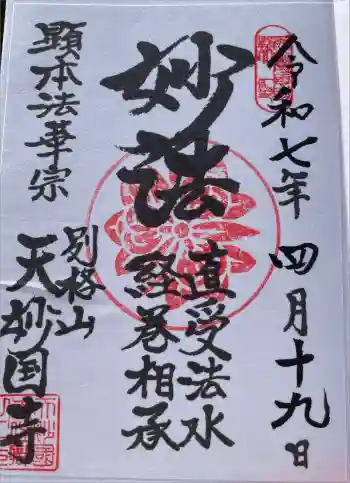 令和七年 四月十九日
妙法
直受法水
経巻相承
顕本法華宗
別格山
天妙国寺